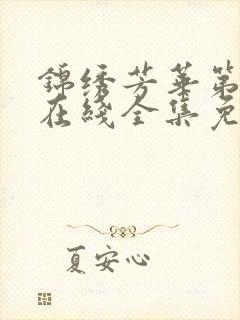 錦绣芳華第
在綫全集免
夏安心